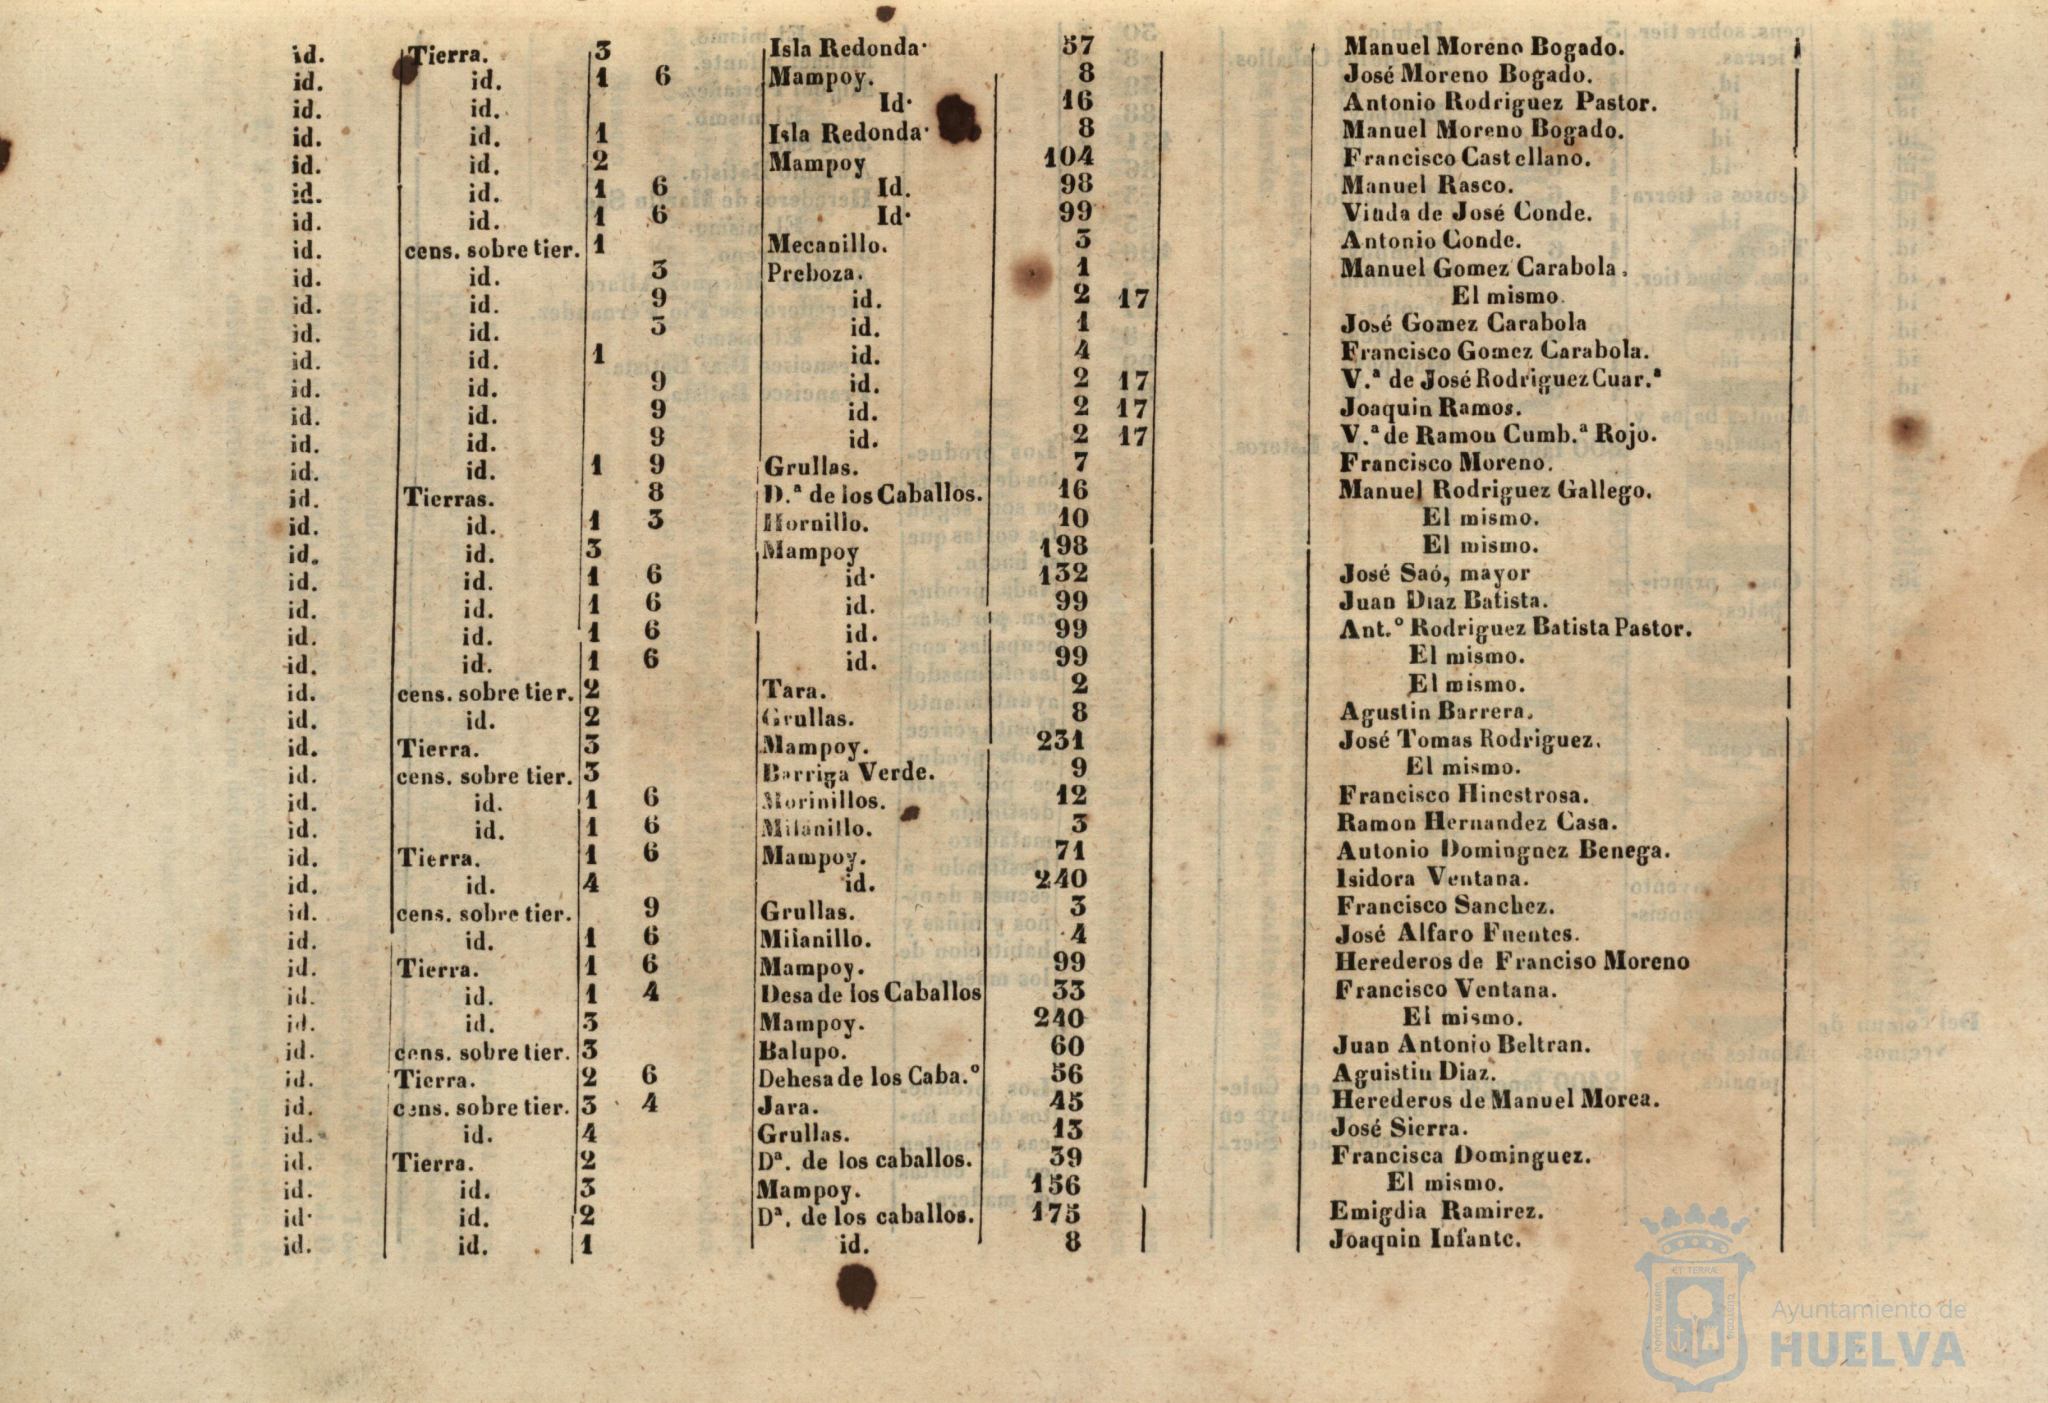 id. Tierra. 3 Isla Redonda. 57 Manuel Moreno Bogado.
id. id. 1 6 Mampoy. 8 José Moreno Bogado.
id. id. Id. 16 Antonio Rodriguez Pastor.
id. id. 1 Isla Redonda. 8 Manuel Moreno Bogado.
id. id. 2 Mampoy 104 Francisco Castellano.
id. id. 1 6 Id. 98 Manuel Rasco.
id. id. 1 6 Id. 99 Viuda de José Conde.
id. cens. sobre tier. 1 Mecanillo. 3 Antonio Conde.
id. id. 3 Preboza. 1 Manuel Gomez Carabola.
id. id. 9 id. 2 17 El mismo.
id. id. 3 id. 1 José Gomez Carabola
id. id. 1 id. 4 Francisco Gomez Carabola.
id. id. 9 id. 2 17 V.ª de José Rodriguez Cuar.ª
id. id. 9 id. 2 17 Joaquin Ramos.
id. id. 9 id. 2 17 V.ª de Ramou Cumb.ª Rojo.
id. id. 1 9 Grullas. 7 Francisco Moreno.
id. Tierras. 8 D.ª de los Caballos. 16 Manuel Rodriguez Gallego.
id. id. 1 3 Hornillo. 10 El mismo.
id. id. 3 Mampoy 198 El mismo.
id. id. 1 6 id. 132 José Saó, mayor
id. id. 1 6 id. 99 Juan Diaz Batista.
id. id. 1 6 id. 99 Ant.º Rodriguez Batista Pastor.
id. id. 1 6 id. 99 El mismo.
id. cens. sobre tier. 2 Tara. 2 El mismo.
id. id. 2 Grullas. 8 Agustin Barrera.
id. Tierra. 3 Mampoy. 231 José Tomas Rodriguez.
id. cens. sobre tier. 3 Barriga Verde. 9 El mismo.
id. id. 1 6 Morinillos. 12 Francisco Hinestrosa.
id. id. 1 6 Milanillo. 3 Ramon Hernandez Casa.
id. Tierra. 1 6 Mampoy. 71 Autonio Domingnez Benega.
id. id. 4 id. 240 Isidora Ventana.
id. cens. sobre tier. 9 Grullas. 3 Francisco Sanchez.
id. id. 1 6 Milanillo. 4 José Alfaro Fuentes.
id. Tierra. 1 6 Mampoy. 99 Herederos de Franciso Moreno
id. id. 1 4 Desa de los Caballos 33 Francisco Ventana.
id. id. 3 Mampoy. 240 El mismo.
id. cens. sobre tier. 3 Balupo. 60 Juan Antonio Beltran.
id. Tierra. 2 6 Dehesa de los Caba.º 56 Aguistiu Diaz.
id. cens. sobre tier. 3 4 Jara. 45 Herederos de Manuel Morea.
id. id. 4 Grullas. 13 José Sierra.
id. Tierra. 2 Dª. de los caballos. 39 Francisca Dominguez.
id. id. 3 Mampoy. 156 El mismo.
id. id. 2 Dª. de los caballos. 175 Emigdia Ramirez.
id. id. 1 id. 8 Joaquin Infante.
Ayuntamiento de
HUELVA